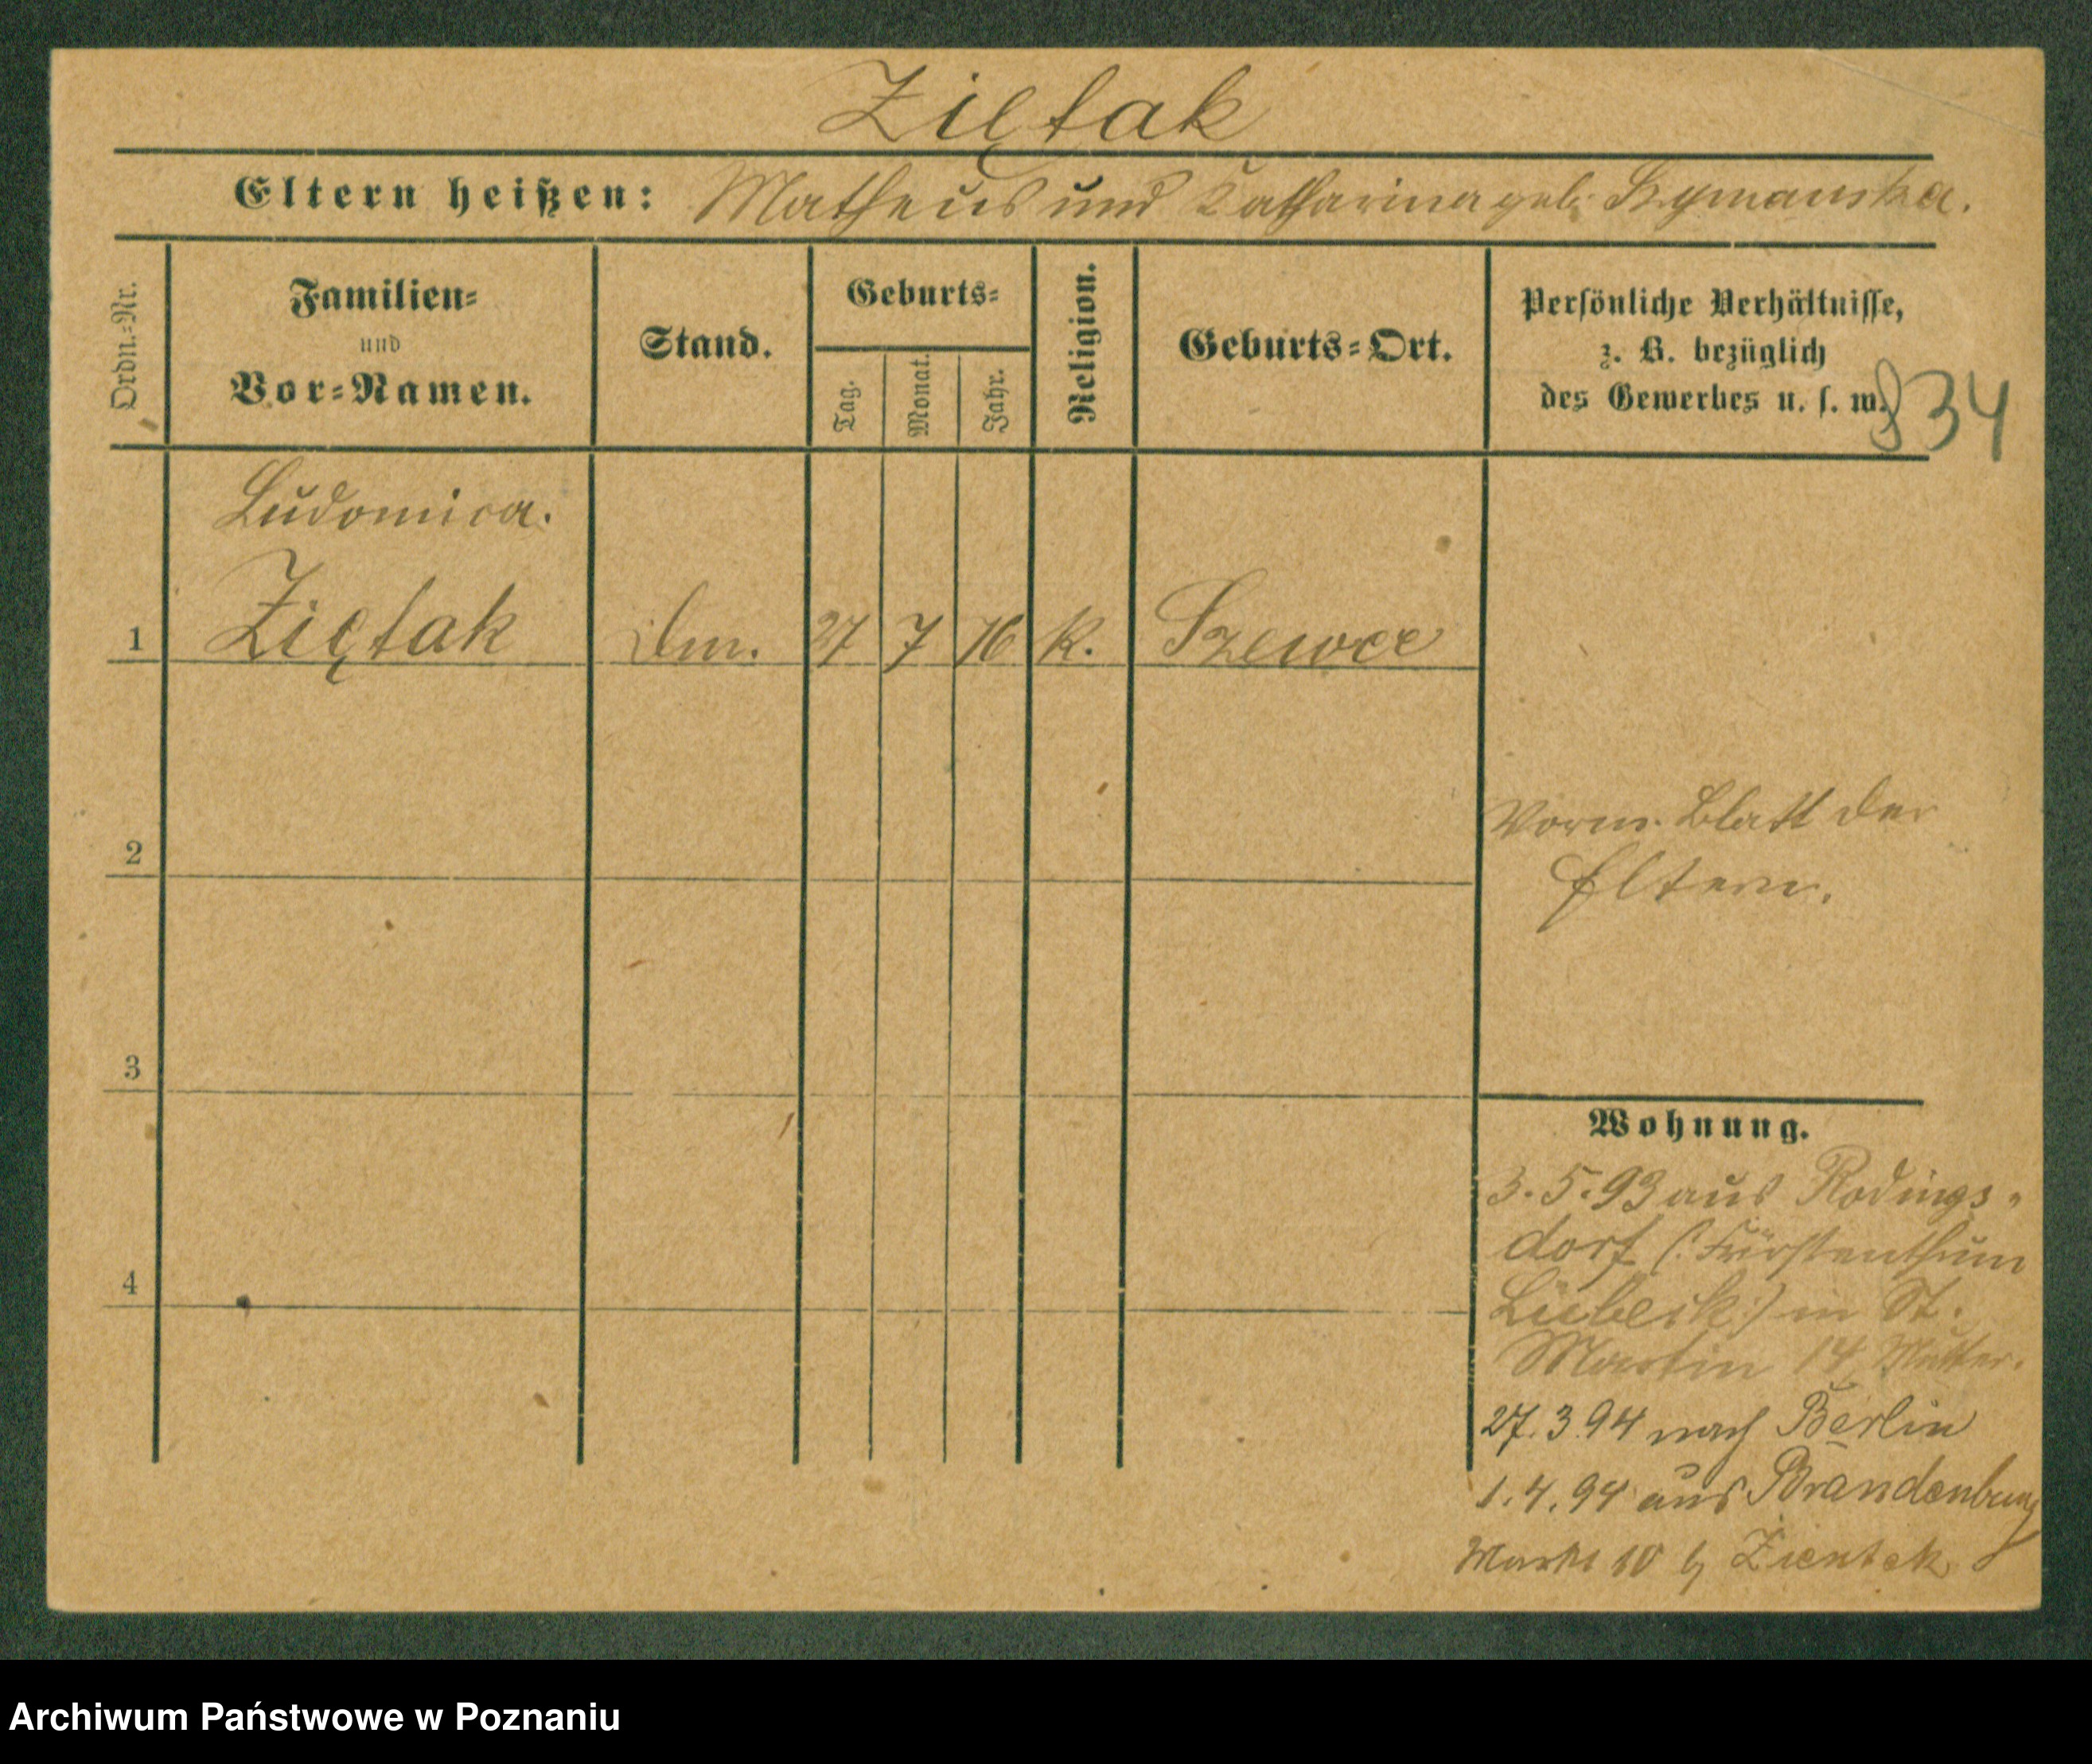 Ziętak
Eltern heißen: Matheus und Katharina geb. Szymanska.
Ordn.-Nr.
Familien-
und
Vor-Namen.
Stand.
Geburts-
Tag.
Monat.
Jahr.
Religion.
Geburts-Ort.
Persönliche Verhältnisse,
z. B. bezüglich
des Gewerbes u. s. w.
834
Ludowica.
1 Ziętak Dm. 27 7 76 K. Szewce
2
3
4
Vorm. Blatt der
Eltern.
Wohnung.
3.5.93 aus Rodings-
dorf (: Fürstenthum
Lübeck :) in St.
Martin 14, Mutter.
27.3.94 nach Berlin
1.4.94 aus Brandenburg
Markt 10 b, Zientak
Archiwum Państwowe w Poznaniu